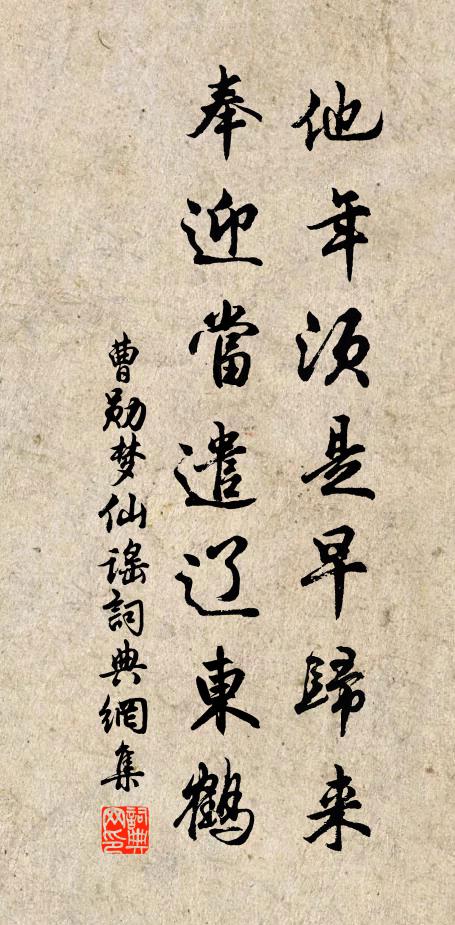 他年须是早歸来
奉迎當遣辽東鶴
曹勛梦仙谣詞典網集
詞典网印